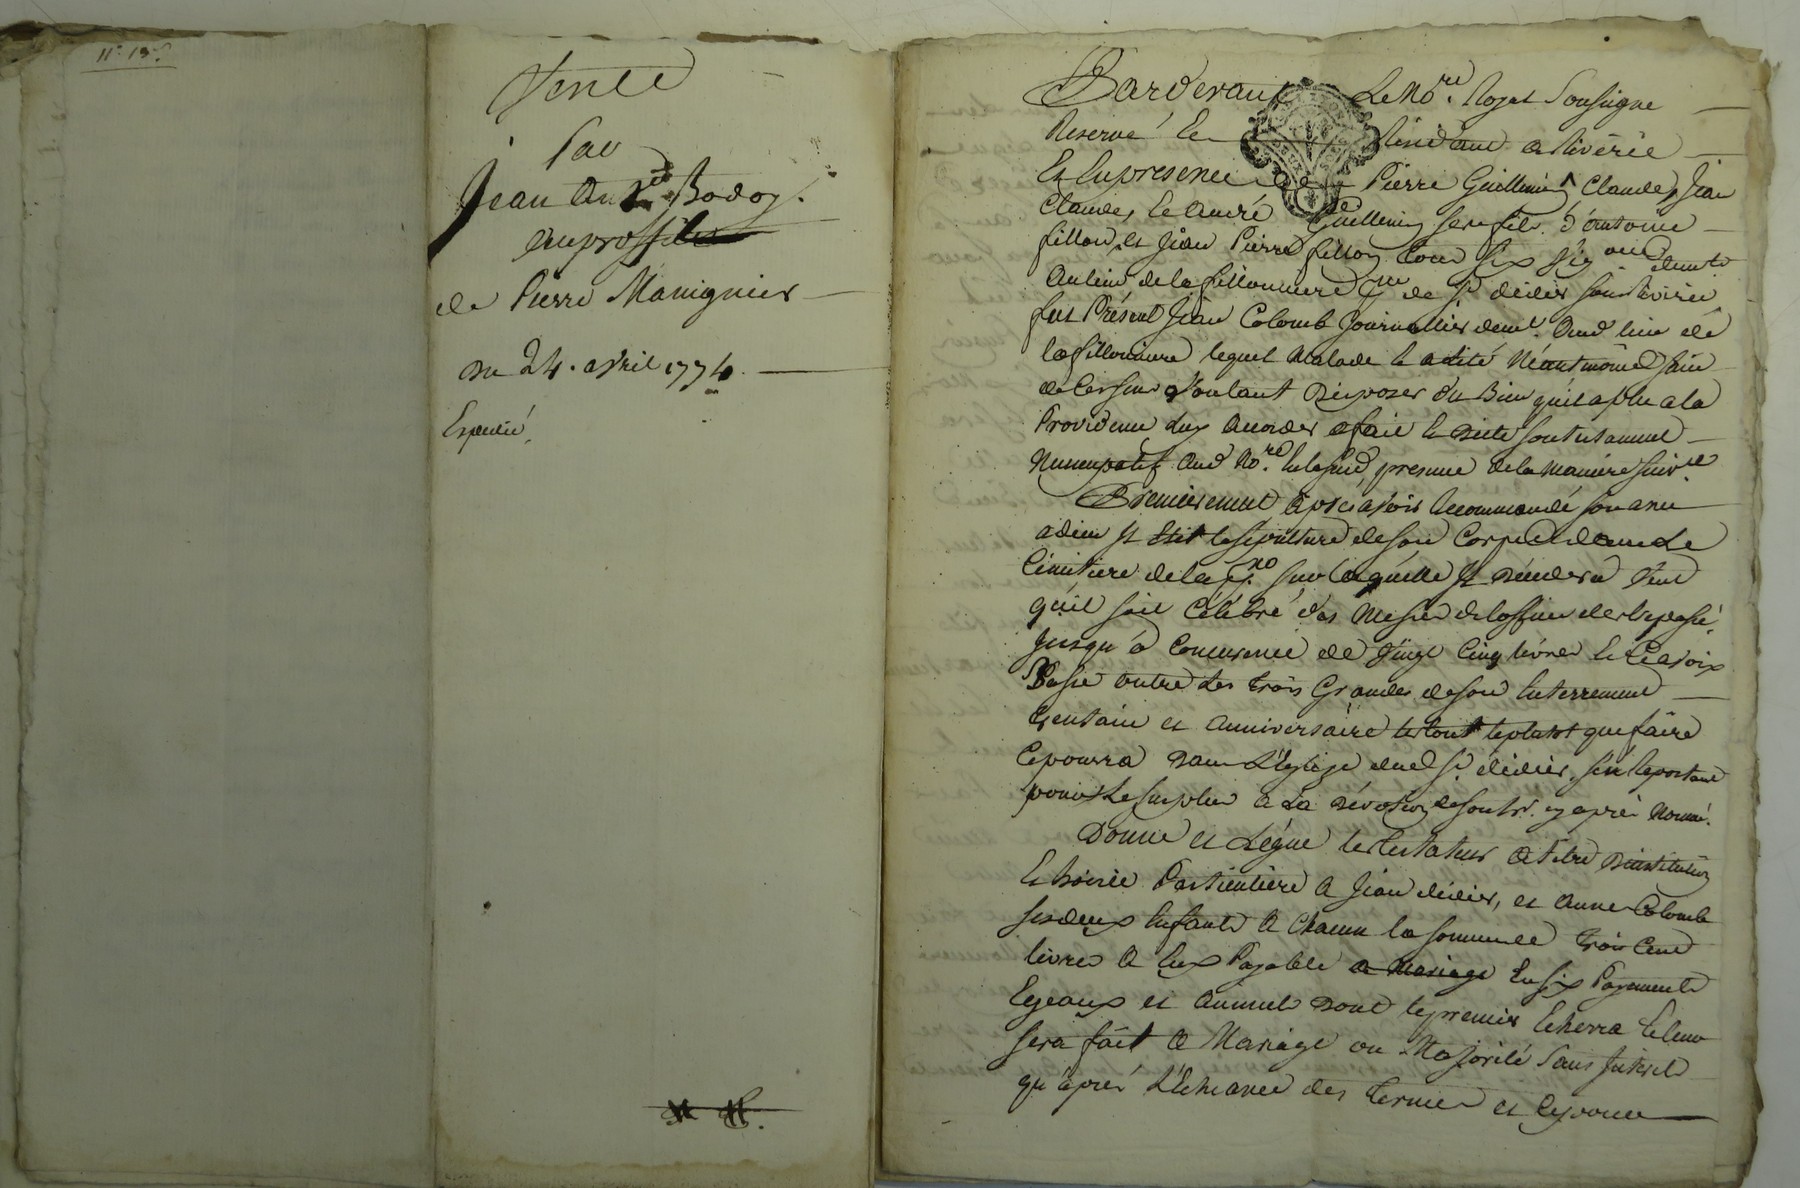 N° 19
Vente
Par
Jean Ant.d Bodoy.
au proffit
de Pierre Mavignier
du 24. avril 1774.
Expedié.
Pardevant Le No.re Royal Soussigne
Reservé les residant a Riverie
Et En presence de Pierre Guillemin, Claude, Jean
Claude, Et André Guillemin ses fils. D'antoine
fillon, et Jean Pierre fillon tous six
Au lieu de la fillonniere p.sse de S.t didier sous Riverie
fut Présent Jean Colomb Journallier demt. Aud lieu de
la fillonniere lequel Malade Neantmoins Sain
de Ces sens Voulant Disposer du Bien qu'il a plu a la
Providence luy Accorder a fait et Dicté son testament
Nuncupatif Aud No.re En la susd presence de la Maniere suiv.te
Premierement Après avoir Recommandé son ame
a dieu Il Elit la sepulture de son Corps dans Le
Cimetiere de la p.sse sur laquelle Il Decedera Veut
qu'il soit Célébré des Messes de l'office des trepassés
Jusqu'à Concurence de Vingt Cinq livres
Basse outre Les trois Grandes de son Enterrement
trentain et anniversaire le tout le plutot que faire
Ce pourra Dans L'Eglize dud S.t didier, s'en raportant
pour Le surplus a La Devotion de son hr. cy après Nommé.
Donne et Lègue le testateur a titre D'institution
Et hoirie Particuliere a Jean didier, et Anne Colomb
ses deux Enfants a Chacun la somme de trois Cent
livres a Eux Payable En six Payements
Egeaux et Annuel Dont le premier Echerra Et leur
sera fait a Mariage ou Majorité Sans Interets
qu'après L'Echeance des termes et